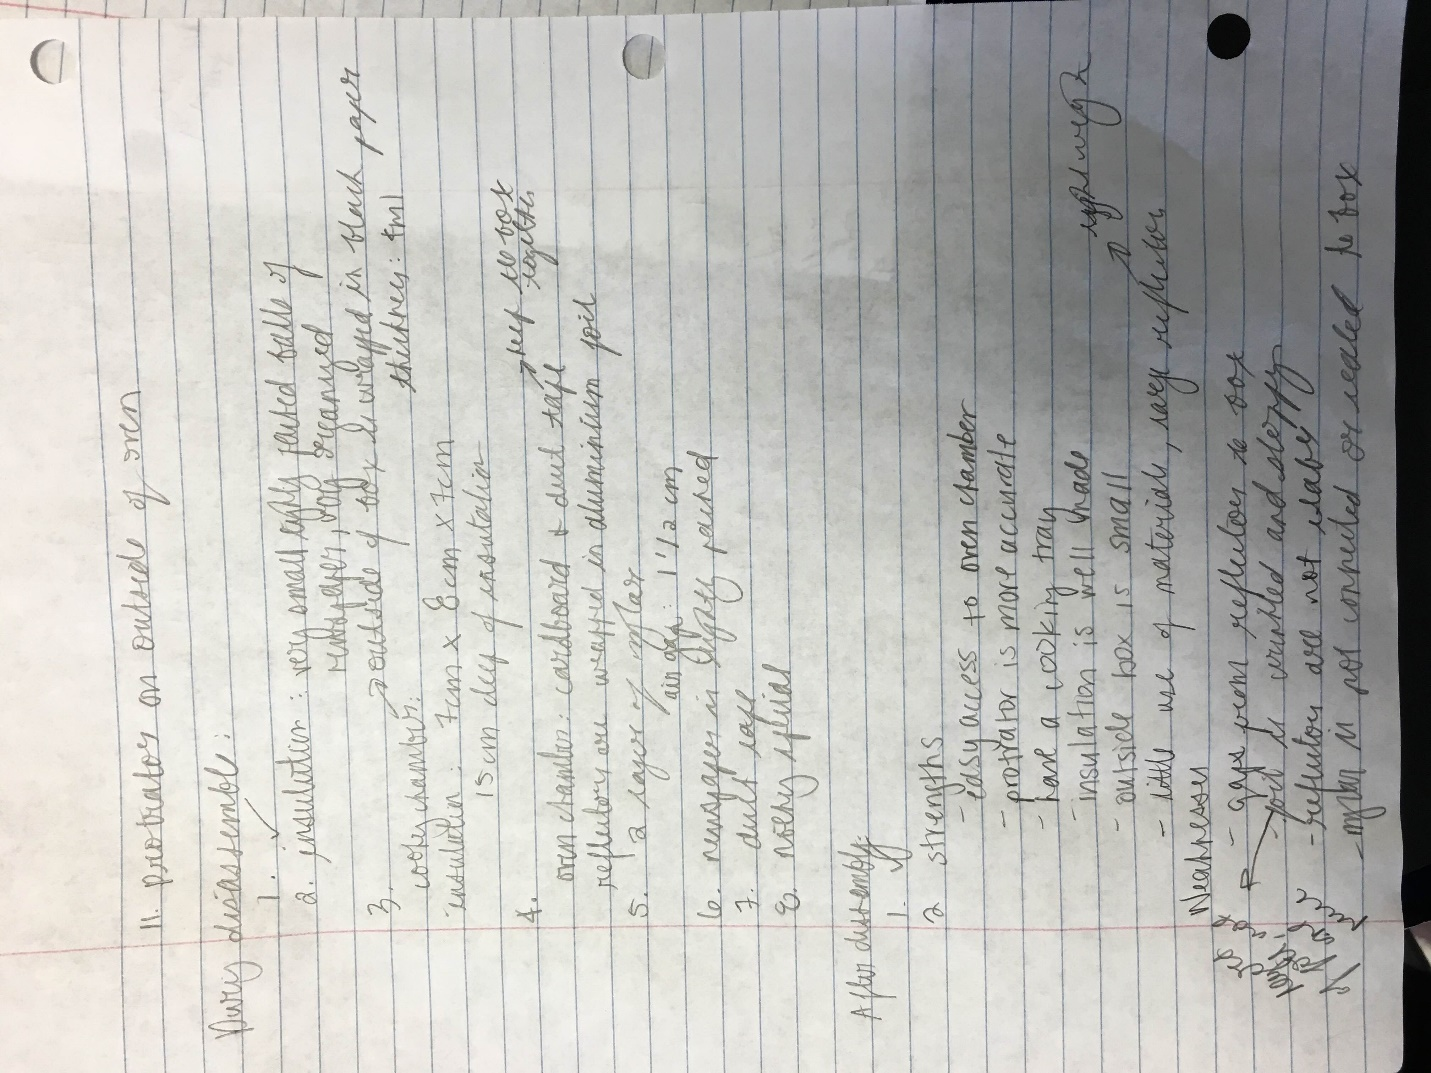 11. protrator on outside of oven
During disassemble:
1. ✓
2. insulation: very small tightly packed balls of
newspaper, very organized
3. → outside of box is wrapped in black paper
thickness:
cooking chamber:
insulation: 7cm x 8cm x 7cm
15cm dep of insulation
4. → keep the box
together
oven chamber: cardboard + duct tape
reflectors are wrapped in aluminium foil
5. 2 layer of mylar
air gap: 1 1/2 cm
6. newspaper is tightly packed
7. duct tape
8. nothing special
After disassembly:
1. ✓
2 strengths
- easy access to oven chamber
- protrator is more accurate
- have a cooking tray
- insulation is well made
- outside box is small → light weight
- little use of materials, large reflector
Weaknesses
- gaps from reflector to box
- foil is wrinkled and sloppy
- reflectors are not stable
- mylar is not connected or sealed to box